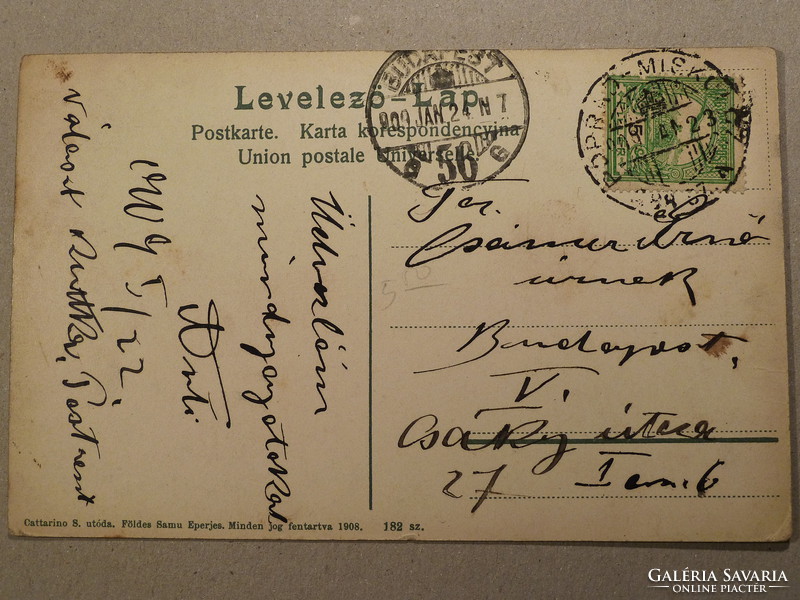 Levelező-Lap.
Postkarte. Karta korespondencyjna
Union postale Universelle.
BUDAPEST
909 JAN 24 N 7
56
MISKO
23
Üdvözlöm
mindnyájatokat
1909 I/22.
Választ Ruttka, Postrest
Csámur Ernő
úrnek
Budapest,
V.
Csáky útcza
27 I em. 6
Cattarino S. utóda. Földes Samu Eperjes. Minden jog fentartva 1908. 182 sz.
GALÉRIA SAVARIA
ONLINE PIACTÉR